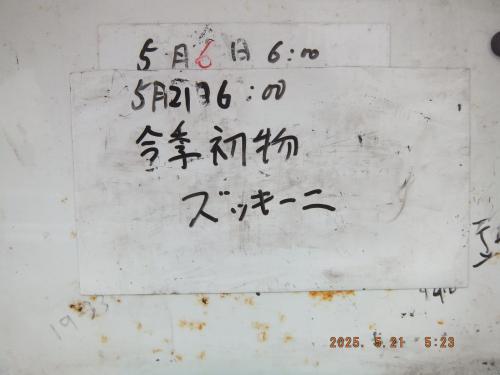 5月6日 6:00
5月21日6:00
今季初物
ズッキーニ
2025. 5.21 5:23